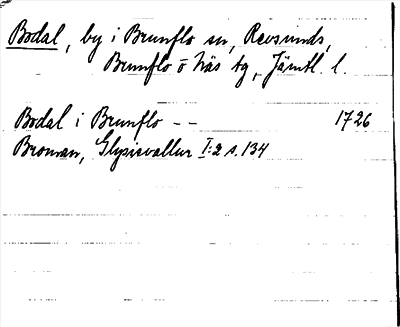 Bodal, by i Brunflo sn, Revsunds,
Brunflo o Näs tg, Jämtl. l.
Bodal i Brunflo -- 1726
Broman, Glysisvallur I:2 s. 134